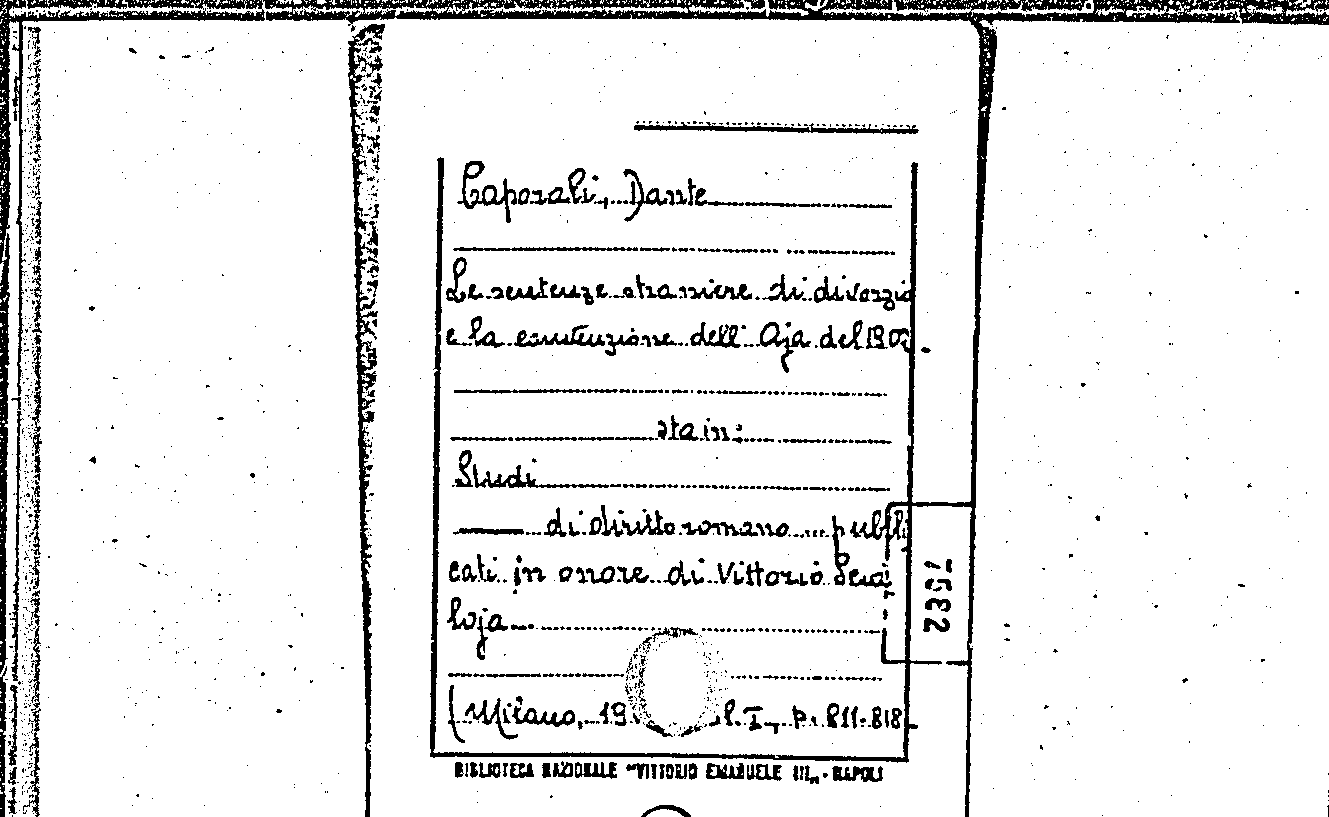 Caporali, Dante
Le sentenze straniere di divorzio
e la convenzione dell' Aja del 1902.
sta in:
Studi
—— di diritto romano ... pubbli
cati in onore di Vittorio Scia
loja...
(Milano, 19 l. I, p. 811-818
BIBLIOTECA NAZIONALE "VITTORIO EMANUELE III" - NAPOLI
7582